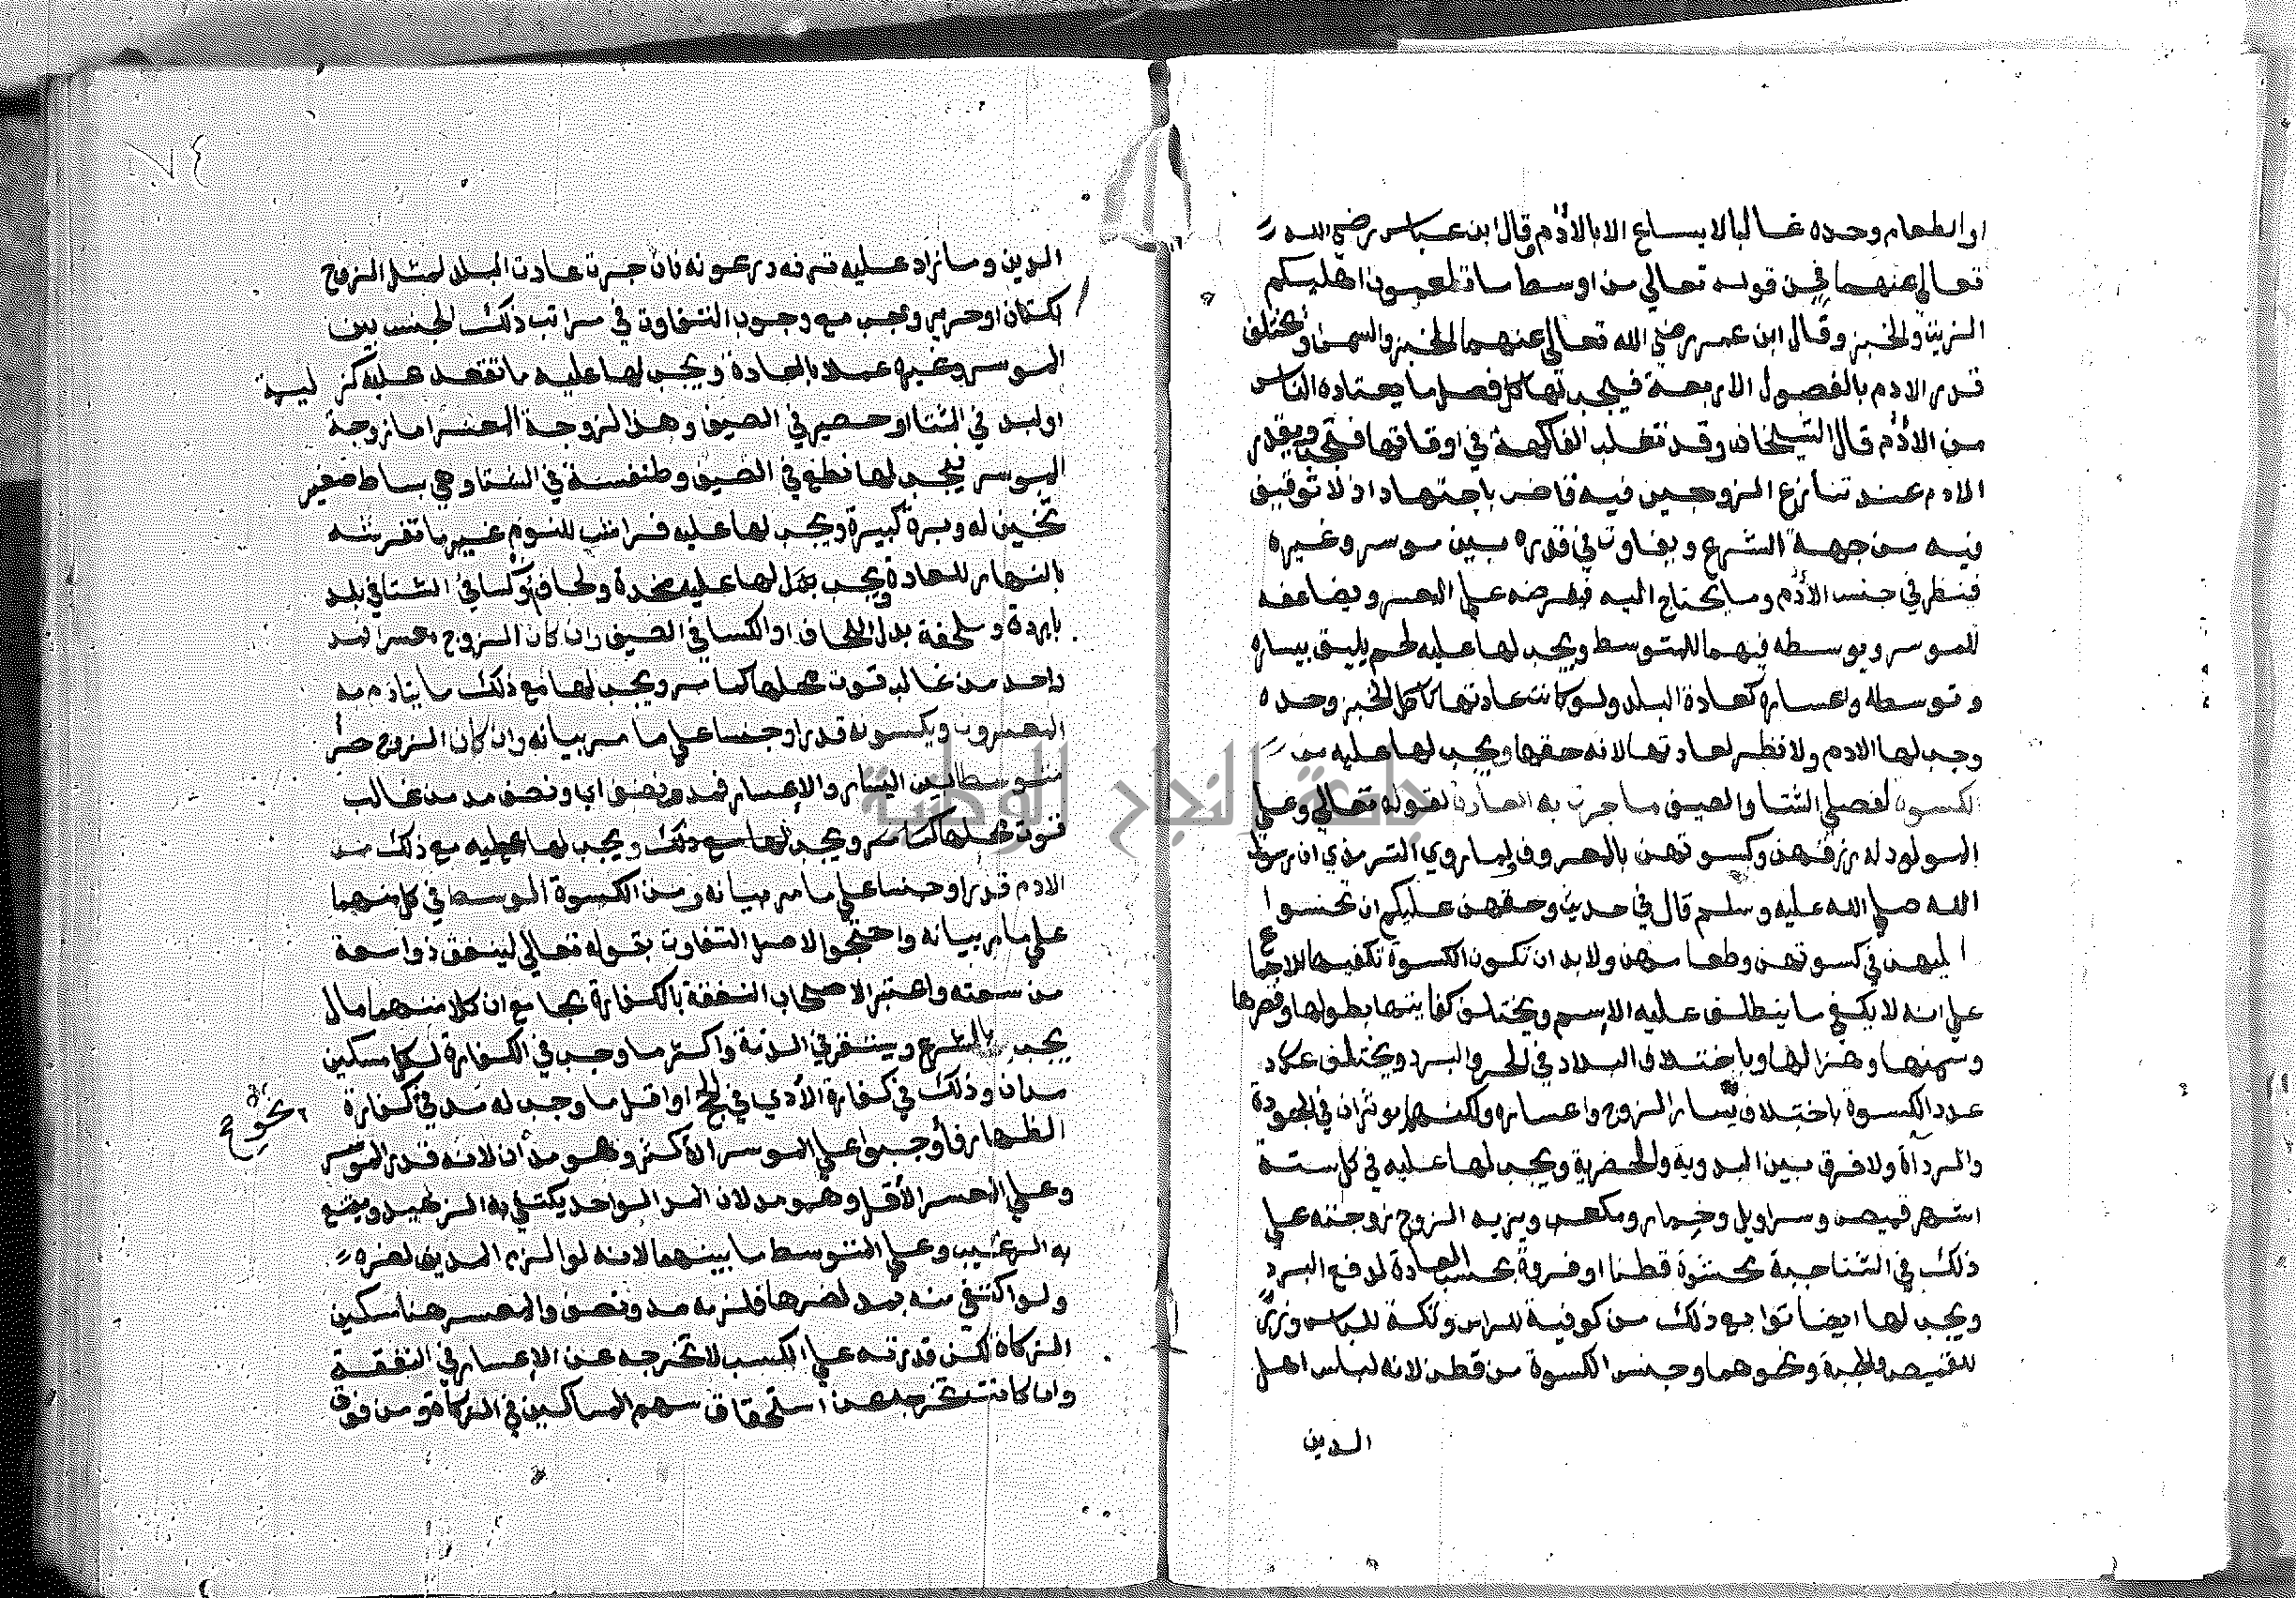 او الطعام وحده غالبا لا يساغ الا بالأدم قال ابن عباس رضي الله
تعالى عنهما في قوله تعالى من اوسط ما تطعمون اهليكم
الزيت والخبز وقال ابن عمر رضي الله تعالى عنهما الخبز والسمن ويختلف
قدر الادم بالفصول الاربعة فيجب لها كل فصل ما يعتاده الناس
من الأدم قال الشيخان وقد تغلب الفاكهة في اوقاتها فتجب ويقدر
الادم عند تنازع الزوجين فيه قاض باجتهاد اذ لا توقيف
فيه من جهة الشرع ويفاوت في قدره بين موسر وغيره
فينظر في جنس الأدم وما يحتاج اليه فيفرضه على المعسر ويضاعفه
للموسر ويوسطه فيهما للمتوسط ويجب لها عليه لحم يليق بيساره
وتوسطه واعساره كعادة البلد ولو كانت عادتها تاكل الخبز وحده
وجب لها الادم ولا نظر لعادتها لانه حقها ويجب لها عليه من
كسوة لفصلي الشتا والصيف ما جرت به العادة لقوله تعالى وعلى
المولود له رزقهن وكسوتهن بالمعروف ولما روي الترمذي ان رسول
الله صلى الله عليه وسلم قال في حديث وحقهن عليكم ان تحسنوا
اليهن في كسوتهن وطعامهن ولا بد ان تكون الكسوة تكفيها للاجماع
على انه لا يكفي ما ينطلق عليه الاسم ويختلف كفايتها بطولها وقصرها
وسمنها وهزالها وباختلاف البلاد في الحر والبرد ويختلف عدد
عدد الكسوة باختلاف يسار الزوج واعساره ولكنهما يوثران في الجودة
والردآة ولا فرق بين البدوية والحضرية ويجب لها عليه في كل ستة
اشهر قميص وسراويل وخمار ومكعب ويزيد الزوج زوجته على
ذلك في الشتا جبة محشوة قطنا او فروة بحسب العادة لدفع البرد
ويجب لها ايضا توابع ذلك من كوفية للراس وتكة للباس وزر
للقميص والجبة ونحوهما وجنس الكسوة من قطن لانه لباس اهل
الدين
٧٤
الدين وما زاد عليه ترفه ورعونه فان جرت عادت البلد لمثل الزوج
بكتان او حرير وجب مع وجوب التفاوت في مراتب ذلك الجنس بين
الموسر وغيره عملا بالعادة ويجب لها عليه ما تقعد عليه كز لية
او لبد في الشتا او حصير في الصيف وهذا لزوجة المعسر اما زوجة
الموسر فيجب لها نطع في الصيف وطنفسة في الشتا وهي بساط صغير
ثخين له وبرة كبيرة ويجب لها عليه فراش للنوم غير ما تفرشه
بالنهار للعادة ويجب لها عليه مخدة ولحاف وكسا في الشتا في بلد
باردة وملحفة بدل اللحاف او الكسا في الصيف وان كان الزوج معسرا فمد
واحد من غالب قوت محلها كما مر ويجب لها مع ذلك ما يتادم به
المعسرون ويكسونه قدرا وجنسا على ما مر بيانه وان كان الزوج حر
متوسط بين اليسار والإعسار فمد ونصف اي ونصف مد من غالب
قوت محلها كما مر ويجب لها مع ذلك ويجب لها عليه مع ذلك من
الادم قدرا وجنسا على ما مر بيانه ومن الكسوة الوسط في كل منهما
على ما مر بيانه واحتجوا لاصل التفاوت بقوله تعالى لينفق ذو اسعة
من سعته واعتبر الاصحاب النفقة بالكفارة بجامع ان كلا منهما مال
يجب بالشرع ويستقر في الذمة واكثر ما وجب في الكفارة لكل مسكين
مدان وذلك في كفارة الأذي في الحج واقل ما وجب له مد في كفارة
الظهار فأوجبوا على الموسر الأكثر وهو مدأن لانه قدر الموسر
وعلى المعسر الأقل وهو مد لان المد الواحد يكتفي به الزهيد ويقنع
به الرغيب وعلى المتوسط ما بينهما لانه لو الزم المدين لضره
ولو اكتفي منه بمد لضرها فلزمه مد ونصف والمعسر هنا مسكين
الزكاة لكن قدرته على الكسب لا تخرجه عن الإعسار في النفقة
وان كانت تخرجه عن استحقاق سهم المساكين في الزكاة ومن فوق